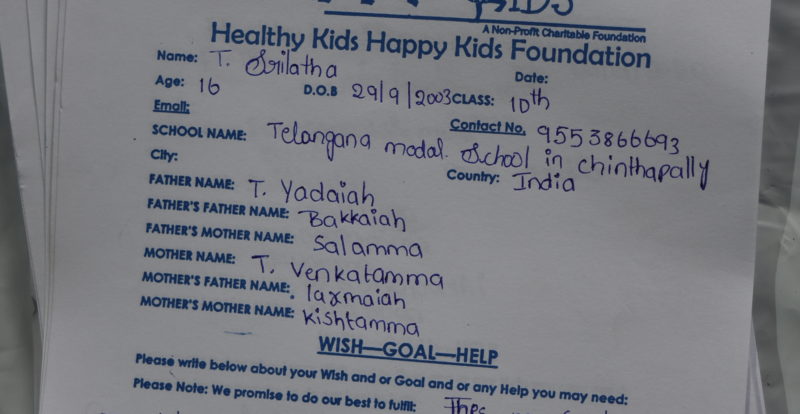 KIDS
A Non-Profit Charitable Foundation
Healthy Kids Happy Kids Foundation
Name: T. Srilatha Date:
Age: 16 D.O.B 29/9/2003 CLASS: 10th
Email: Contact No. 9553866693
SCHOOL NAME: Telangana modal. School in chinthapally
City: Country: India
FATHER NAME: T. Yadaiah
FATHER'S FATHER NAME: Bakkaiah
FATHER'S MOTHER NAME: Salamma
MOTHER NAME: T. Venkatamma
MOTHER'S FATHER NAME: laxmaiah
MOTHER'S MOTHER NAME: kishtamma
WISH—GOAL—HELP
Please write below about your Wish and or Goal and or any Help you may need:
Please Note: We promise to do our best to fulfil: